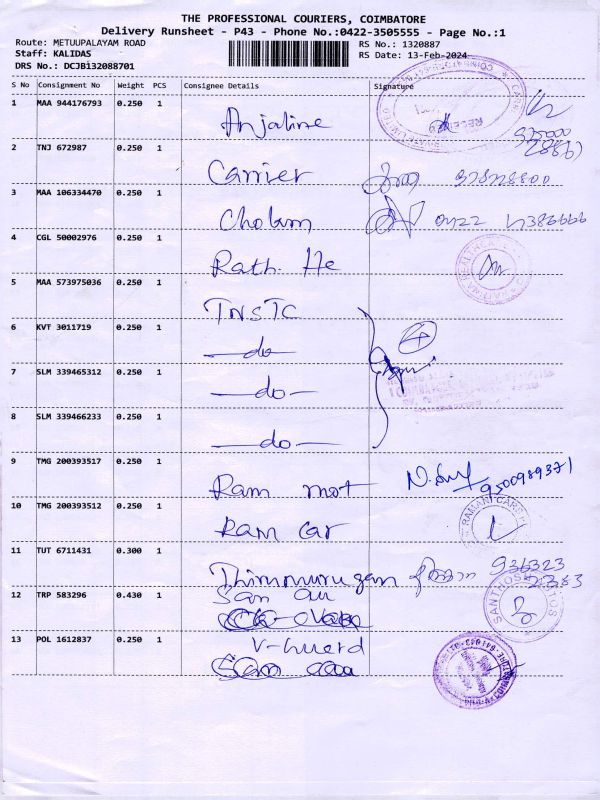 THE PROFESSIONAL COURIERS, COIMBATORE
Delivery Runsheet - P43 - Phone No.:0422-3505555 - Page No.:1
Route: METUUPALAYAM ROAD
RS No.: 1320887
Staff: KALIDAS
RS Date: 13-Feb-2024
DRS No.: DCJBi32088701
S No Consignment No Weight PCS Consignee Details Signature
1 MAA 944176793 0.250 1 Anjaline
2 TNJ 672987 0.250 1 Carrier
3 MAA 106334470 0.250 1 Cholam
4 CGL 50002976 0.250 1 Rath. He
5 MAA 573975036 0.250 1 TNSTC
6 KVT 3011719 0.250 1 —do—
4
7 SLM 339465312 0.250 1 —do—
8 SLM 339466233 0.250 1 —do—
9 TMG 200393517 0.250 1 Ram mot 9500989371
10 TMG 200393512 0.250 1 Ram car
11 TUT 6711431 0.300 1 Thirumurugan
12 TRP 583296 0.430 1 San au
13 POL 1612837 0.250 1 V-Guard